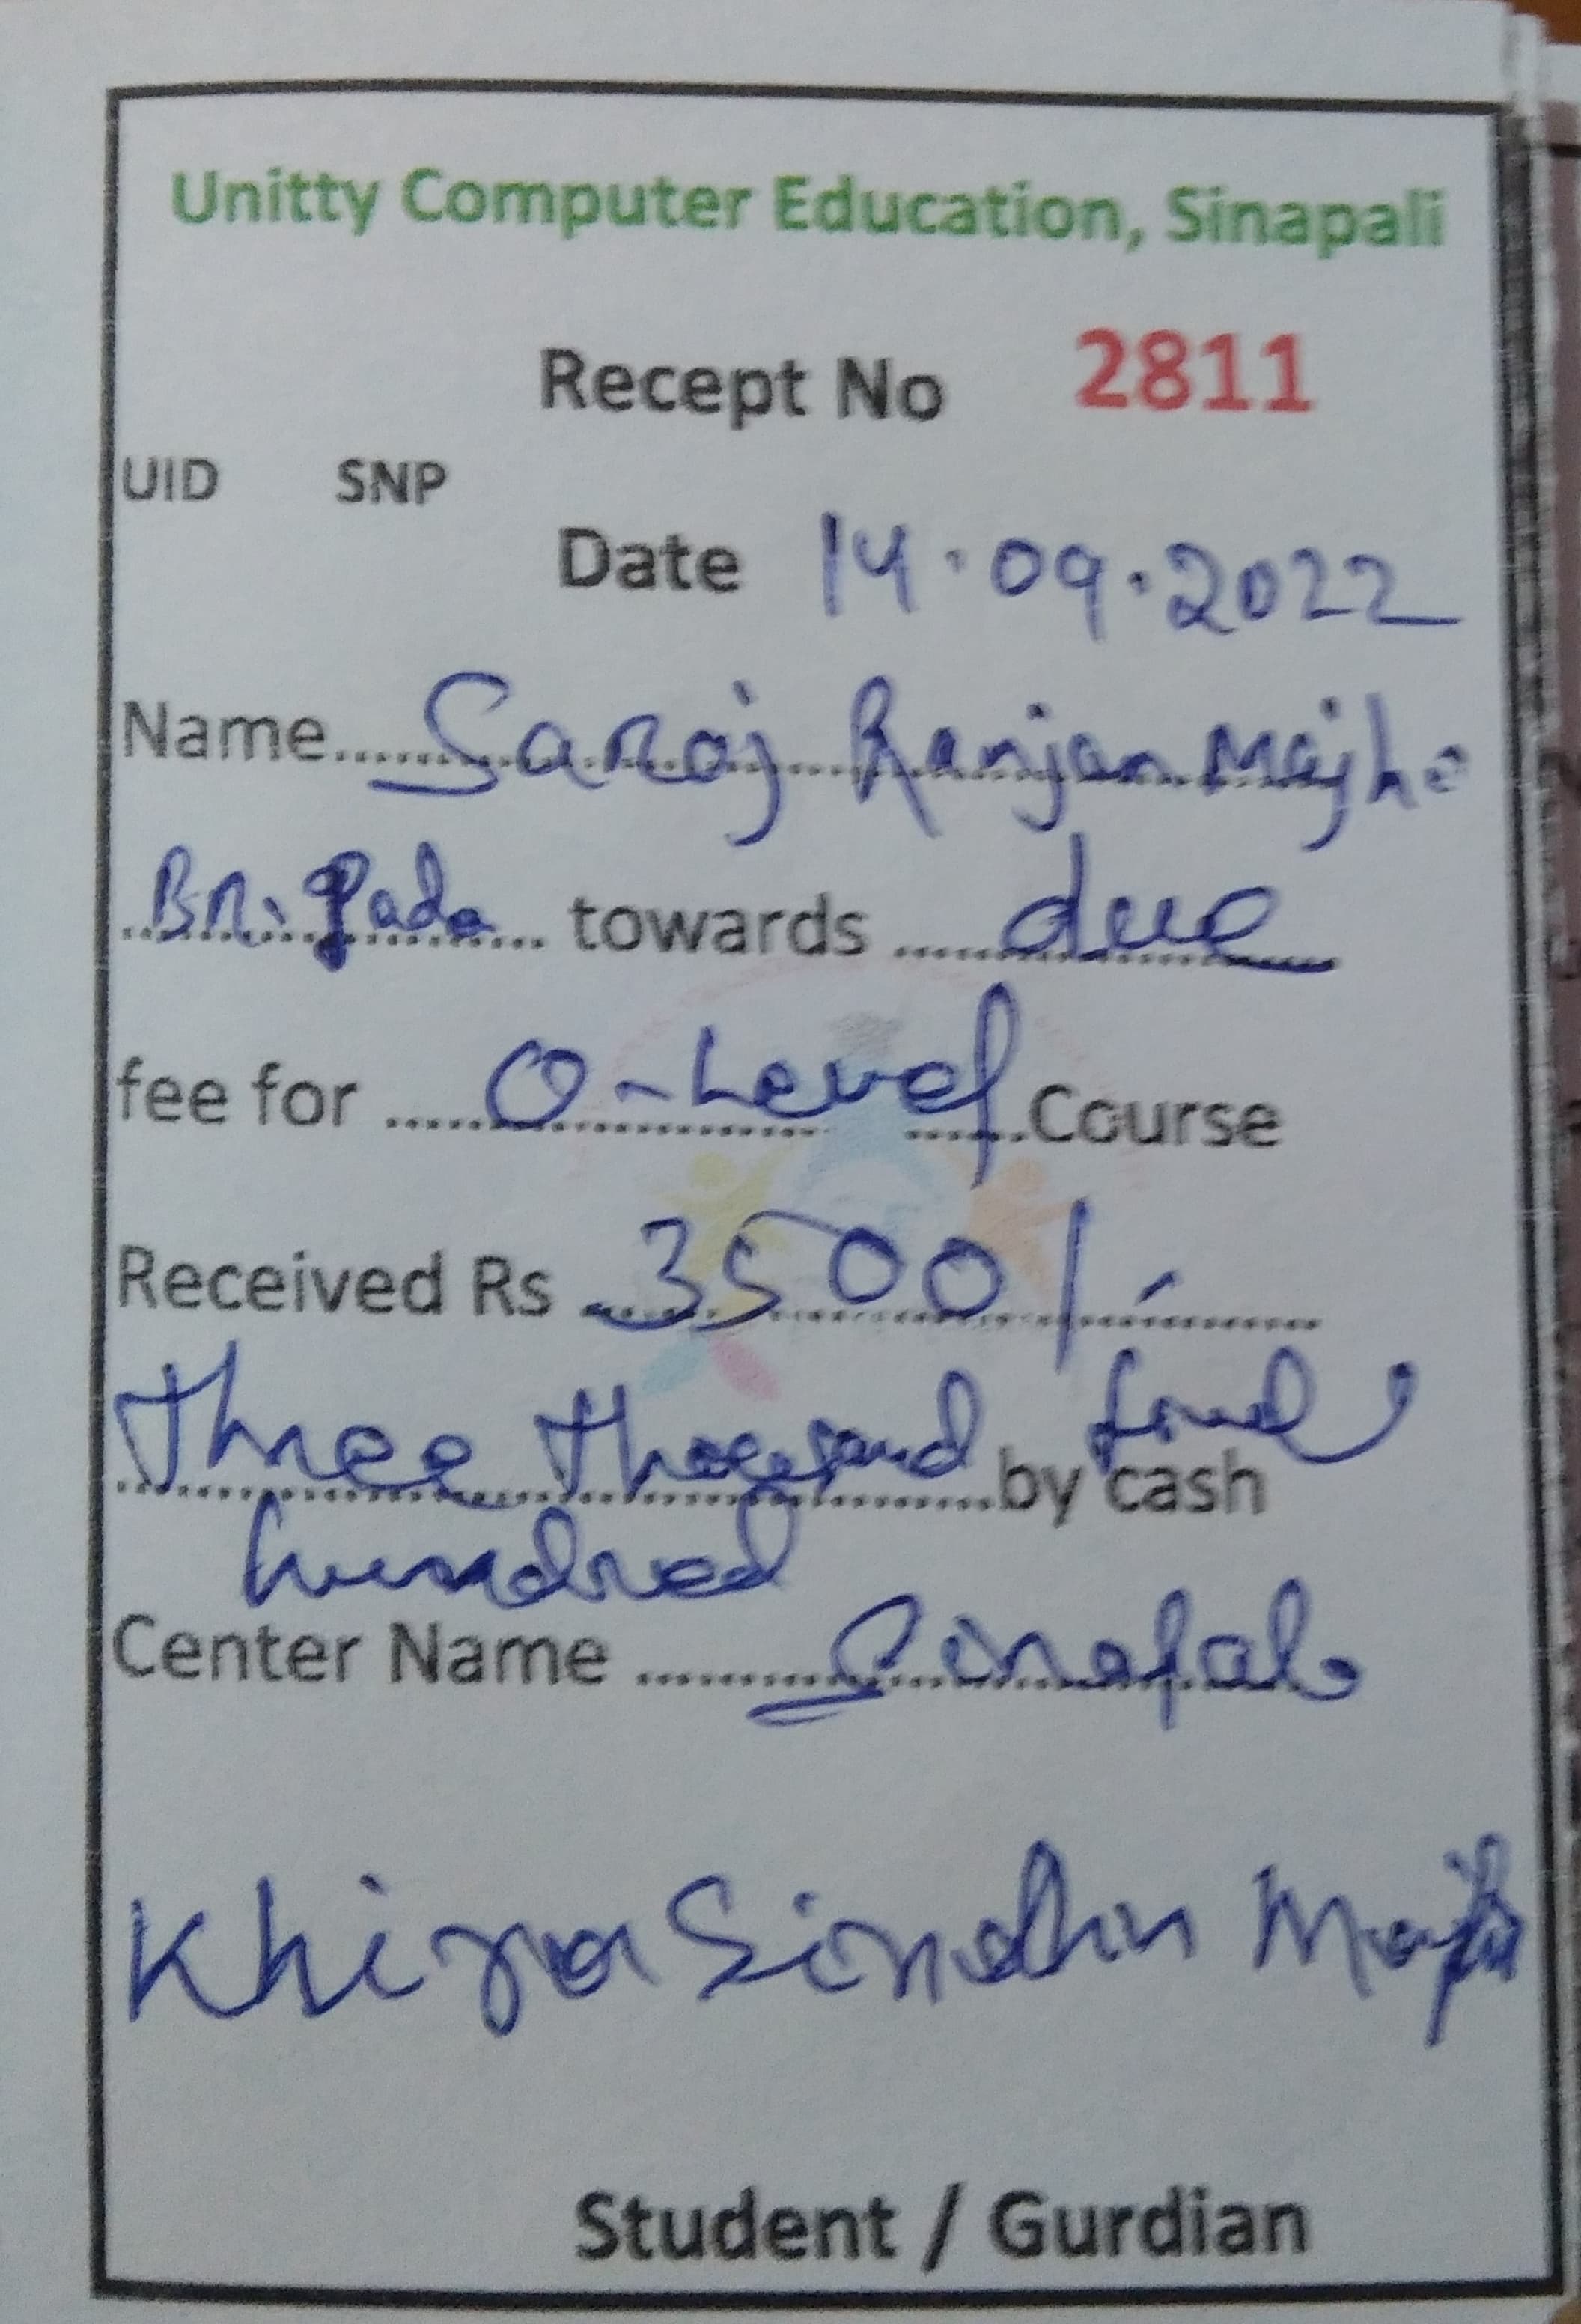 Unitty Computer Education, Sinapali
Recept No 2811
UID SNP
Date 14.09.2022
Name Saroj Ranjan Majhi
towards due
fee for O-Level Course
Received Rs 3500/-
Three thousand five
by cash
hundred
Center Name Sinapali
Khira Sindhu Majhi
Student / Gurdian